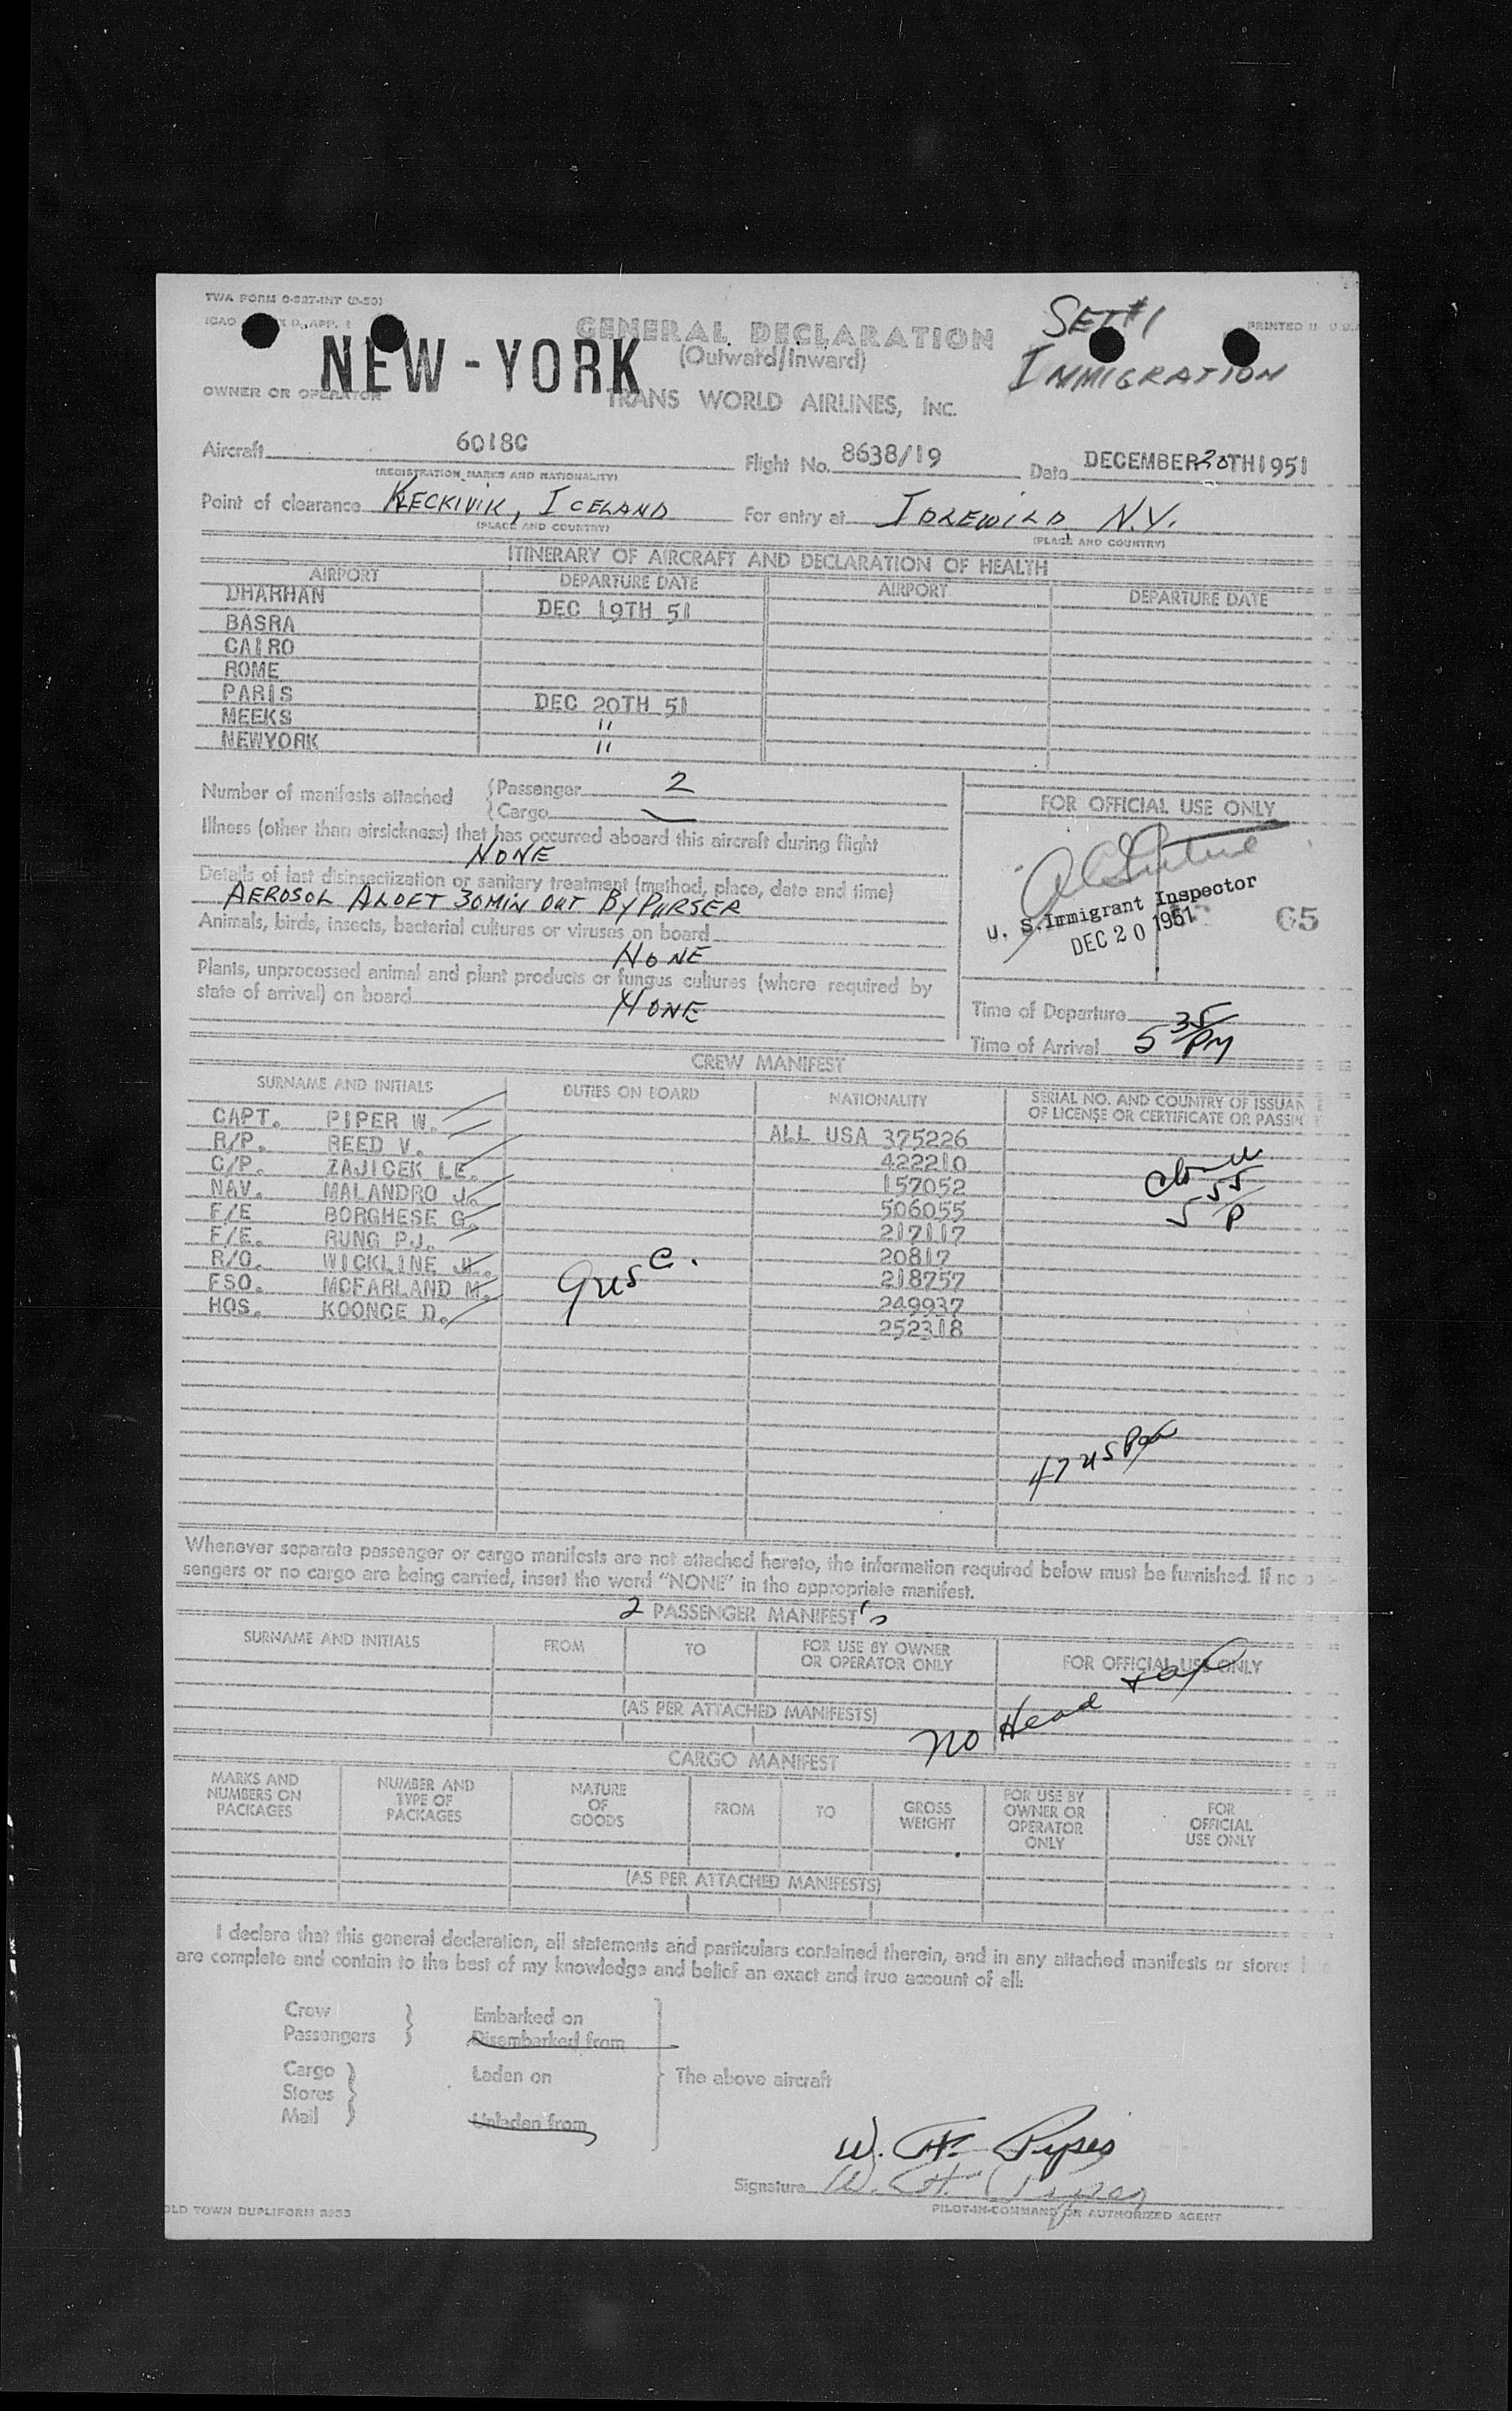 TWA FORM O-827-INT (9-50)
ICAO X D, APP. 1
SET #1
PRINTED U.S.A.
GENERAL DECLARATION
NEW-YORK
(Outward/Inward)
IMMIGRATION
OWNER OR OPERATOR TRANS WORLD AIRLINES, INC.
Aircraft 6018C Flight No. 8638/19 Date DECEMBER 20TH 1951
(REGISTRATION MARKS AND NATIONALITY)
Point of clearance KLECKIVIK, ICELAND For entry at IDLEWILD, N.Y.
(PLACE AND COUNTRY) (PLACE AND COUNTRY)
ITINERARY OF AIRCRAFT AND DECLARATION OF HEALTH
AIRPORT DEPARTURE DATE AIRPORT DEPARTURE DATE
DHARHAN DEC 19TH 51
BASRA
CAIRO
ROME
PARIS DEC 20TH 51
MEEKS "
NEWYORK "
Number of manifests attached { Passenger 2
{ Cargo —
FOR OFFICIAL USE ONLY
Illness (other than airsickness) that has occurred aboard this aircraft during flight
NONE
Details of last disinsectization or sanitary treatment (method, place, date and time)
AEROSOL ALOFT 30MIN OUT BY PURSER
U. S. Immigrant Inspector
DEC 20 1951
65
Animals, birds, insects, bacterial cultures or viruses on board
NONE
Plants, unprocessed animal and plant products or fungus cultures (where required by
state of arrival) on board NONE
Time of Departure
Time of Arrival 5 35 PM
CREW MANIFEST
SURNAME AND INITIALS DUTIES ON BOARD NATIONALITY SERIAL NO. AND COUNTRY OF ISSUANCE
OF LICENSE OR CERTIFICATE OR PASSPORT
CAPT. PIPER W. ALL USA 375226
R/P. REED V. 422210
C/P. ZAJICEK LE. 157052
NAV. MALANDRO J. 506055
F/E BORGHESE G. 217117
F/E. RUNG PJ. 20817
R/O. WICKLINE JW. 218757
FSO. MCFARLAND M. 249937
HOS. KOONCE D. 252318
5 55 P
9 us C.
47 US Pax
Whenever separate passenger or cargo manifests are not attached hereto, the information required below must be furnished. If no
sengers or no cargo are being carried, insert the word "NONE" in the appropriate manifest.
2 PASSENGER MANIFEST's
SURNAME AND INITIALS FROM TO FOR USE BY OWNER OR OPERATOR ONLY FOR OFFICIAL USE ONLY
(AS PER ATTACHED MANIFESTS)
no Head tax
CARGO MANIFEST
MARKS AND NUMBERS ON PACKAGES NUMBER AND TYPE OF PACKAGES NATURE OF GOODS FROM TO GROSS WEIGHT FOR USE BY OWNER OR OPERATOR ONLY FOR OFFICIAL USE ONLY
(AS PER ATTACHED MANIFESTS)
I declare that this general declaration, all statements and particulars contained therein, and in any attached manifests or stores
are complete and contain to the best of my knowledge and belief an exact and true account of all:
Crew } Embarked on
Passengers } Disembarked from
Cargo } Laden on The above aircraft
Stores }
Mail } Unladen from
W. H. Piper
Signature W. H. Piper
PILOT-IN-COMMAND OR AUTHORIZED AGENT
OLD TOWN DUPLIFORM 3953